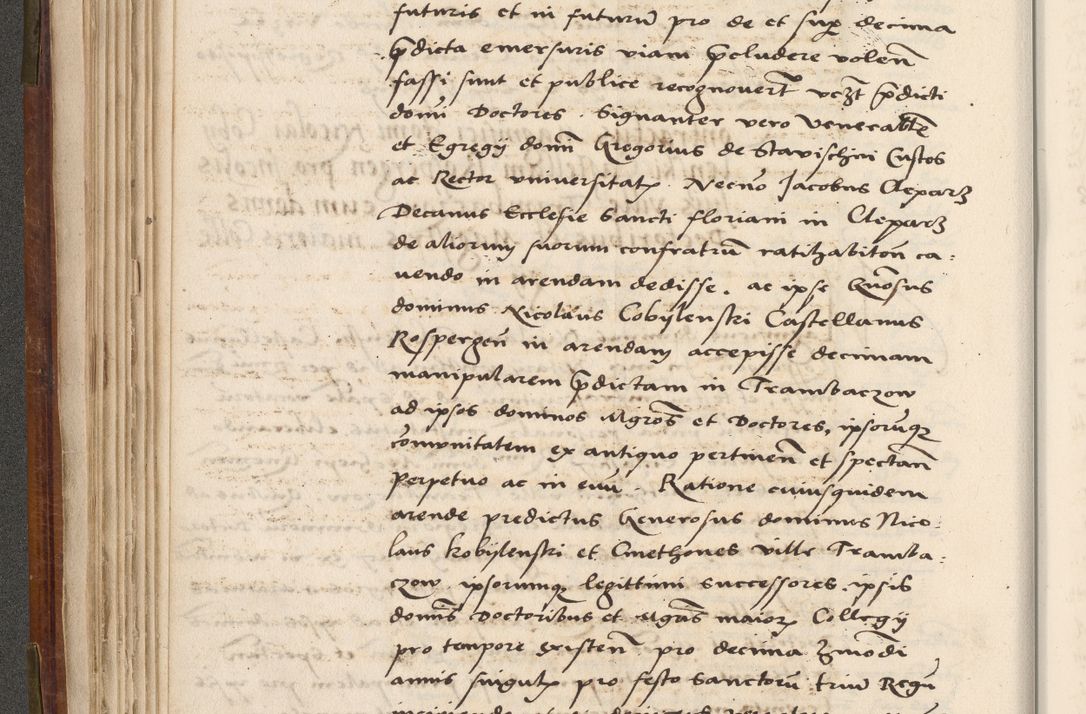 futuris et in futurū pro de et sup̄ decima
p̄dicta emersuris viam p̄cludere volen̄
fassi sunt et publice recognovert̄ vcȝt p̄dicti
domī Doctores. Signanter vero venerabłes
et Egregÿ domī Gregorius de Stavischin Custos
ac Rector universitatꝭ. Necnō Jacobus Cleparȝ
Decanus Ecclesie Sancti floriani in Cleparȝ
de aliorum suorum confratrū ratihabitoñ ca-
vendo in arendam dedisse. ac ipse Gn̄osus
dominus Nicolaus Cobÿlenski Castellanus
Rospergeñ in arendam accepisse decimam
manipularem p̄dictam in Trambaczow
ad ipsos dominos Mgrōs et Doctores, ipsorūqꝫ
cōmunitatem ex antiquo pertineñ et spectañ
Perpetuo ac in evū. Ratione cuiusquidem
arende predictus Generosus dominus Nico-
laus kobÿlenski et Cmethones ville Tramba-
czow ipsorumqꝫ legittimi successores. ipsis
domīs Doctoribus et Mgrīs maiorꝭ Collegÿ
pro tempore existeñ pro decima hm̄odi
annis singulꝭ pro festo Sanctorū triū Regū